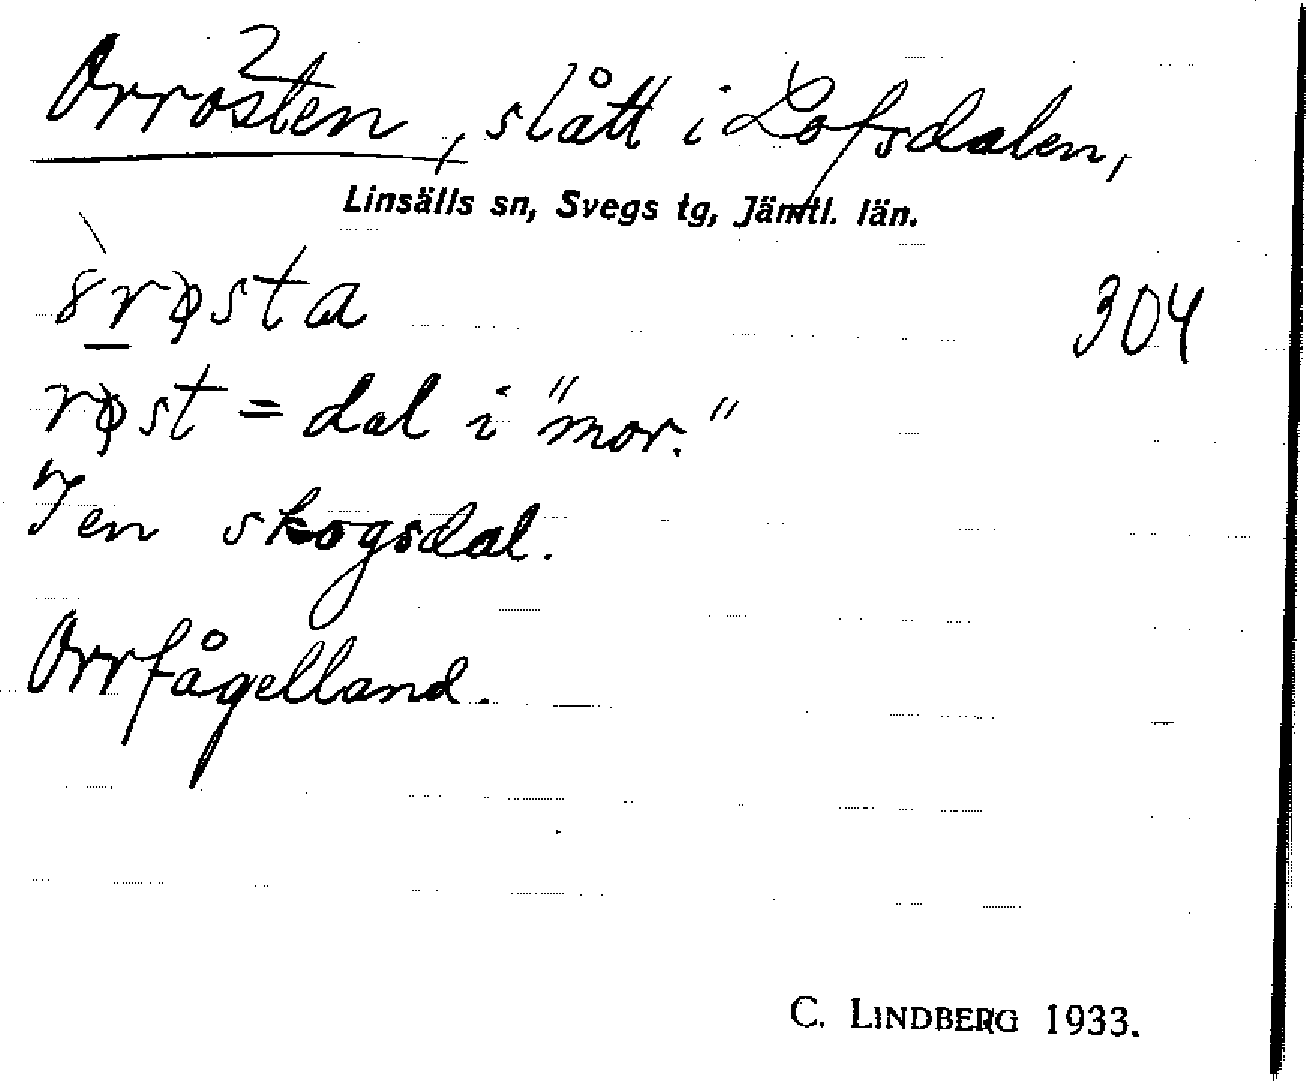 Orrösten, slått i Lofsdalen,
Linsälls sn, Svegs tg, Jämtl. län.
304
røst = dal i "mor."
I en skogsdal.
Orrfågelland.
C. LINDBERG 1933.